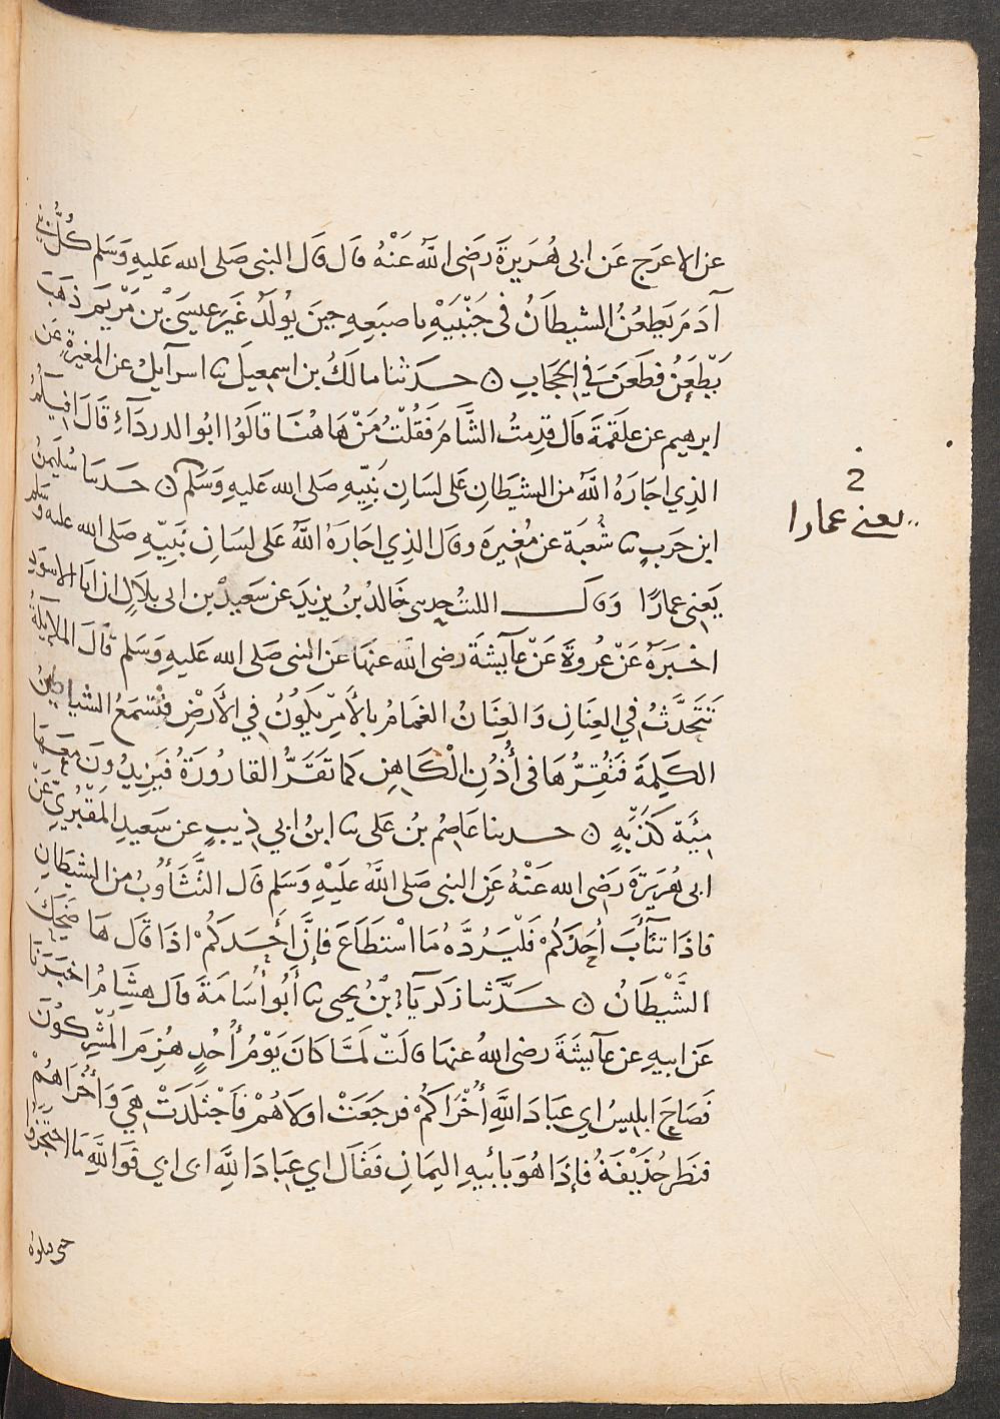 عن الاعرج عَن ابى هُرَيرَةَ رَضى اللّٰهُ عَنْهُ قَال قَال النبى صَلى الله عَليهِ وَسَلم كُلُّ بَنى
آدَمَ يَطعُنُ الشيطَانُ فى جَنْبَيْهِ باصبَعِهِ حِينَ يُولَدُ غَيرَ عِيسَىْ بْن مَرْيَمَ ذهَبَ
يَطْعَنُ فطَعَنَ فِي الحِجَابِ ٥ حَدثنا مالكُ بن اسمعِيلَ ثنا اسرآيلُ عن المغيرةِ عَن
ابرهيم عن علقمَةَ قَال قدِمتُ الشَّامَ فَقُلْتُ مَنْ هَاهُنَا قالَوُا ابوُ الدردَآءِ قَالَ افيكُمُ
الذِي اجَارَهُ اللّٰهُ من الشيَطَانِ عَلى لسَانِ نَبِيّهِ صَلى الله عَليهِ وَسَلم ٥ حَدثنا سُلَيمنُ
ابن حَربٍ ثنا شُعبَة عن مُغِيرَه وقالَ الذِي اجَارَهُ اللّٰهُ عَلى لسَانِ نَبِيّهِ صَلى الله عليه وَسَلم
يَعنِى عمارًا وَقَال الليث حدثنى خَالدُ بنُ يزيدَ عَن سَعيدْ بن ابى هِلالٍ ان ابا الاسوَدِ
اخبَرَهُ عَنْ عُروةَ عَنْ عآيشَةَ رضى اللّٰه عنهَا عَن النبى صَلى الله عَليهِ وَسَلم قَالَ الملآيكةُ
تَتَحَدَّثُ فِي العِنَانِ وَالعِنَانُ الغمَامُ بالأَمِرِ يَكوُنُ فِي الأَرَضِ فتْسَمعُ الشيَاطينُ
الكَلِمَةَ فَتقُرُّهَا فى أُذُنِ الْكَاهِنِ كمَا تقَرَّ القارُورَةُ فيَزيدُونَ مَعَهَا
مِئَة كَذبَةٍ ٥ حدثنا عَاصِمُ بنُ عَلى ثنا ابنُ ابي ذِيبٍ عن سَعيدِ المَقْبُرِيّ عَنْ
ابى هُرَيرَةَ رَضى الله عَنْهُ عَنِ النبى صَلى اللّٰهُ عَليْهِ وَسَلم قَال التَّثَأوُّبُ من الشيطَانِ
فاذَا تثَآءَبَ أَحَدُكُمْ فَلْيَرُدَّهُ مَا اسْتطَاعَ فَإِنَّ أَحَدَكُمْ اذَا قَالَ هَا ضَحِكَ
الشَّيْطَانُ ٥ حَدَّثنا زكريَآءُ بْنُ يحيى ثنا أَبُو أُسَامَةَ قَال هِشَامُ اخبَرَنَا
عَن ابيهِ عن عآيشَةَ رضى اللّٰهُ عنهَا قالَتْ لمَّا كَانَ يَوْمُ أُحُدٍ هُزِمَ المُشرِكوُنَ
فَصَاحَ ابلِيسُ اي عبَادَ اللَّهِ أُخْرَاكمُ فرجَعَتْ اولاَهُمْ فَاجْتَلَدَتْ هِيَ وَأُخْرَاهُمْ
فنَظَرَ حُذَيْفَةُ فَإِذَا هُوَ بابيهِ اليمَانِ فَقَال اي عِبَادَ اللَّهِ ابى ابي فَوَاللَّهِ مَا احتَجَزُوا
حى قتلوه
2
يعنى عمارا